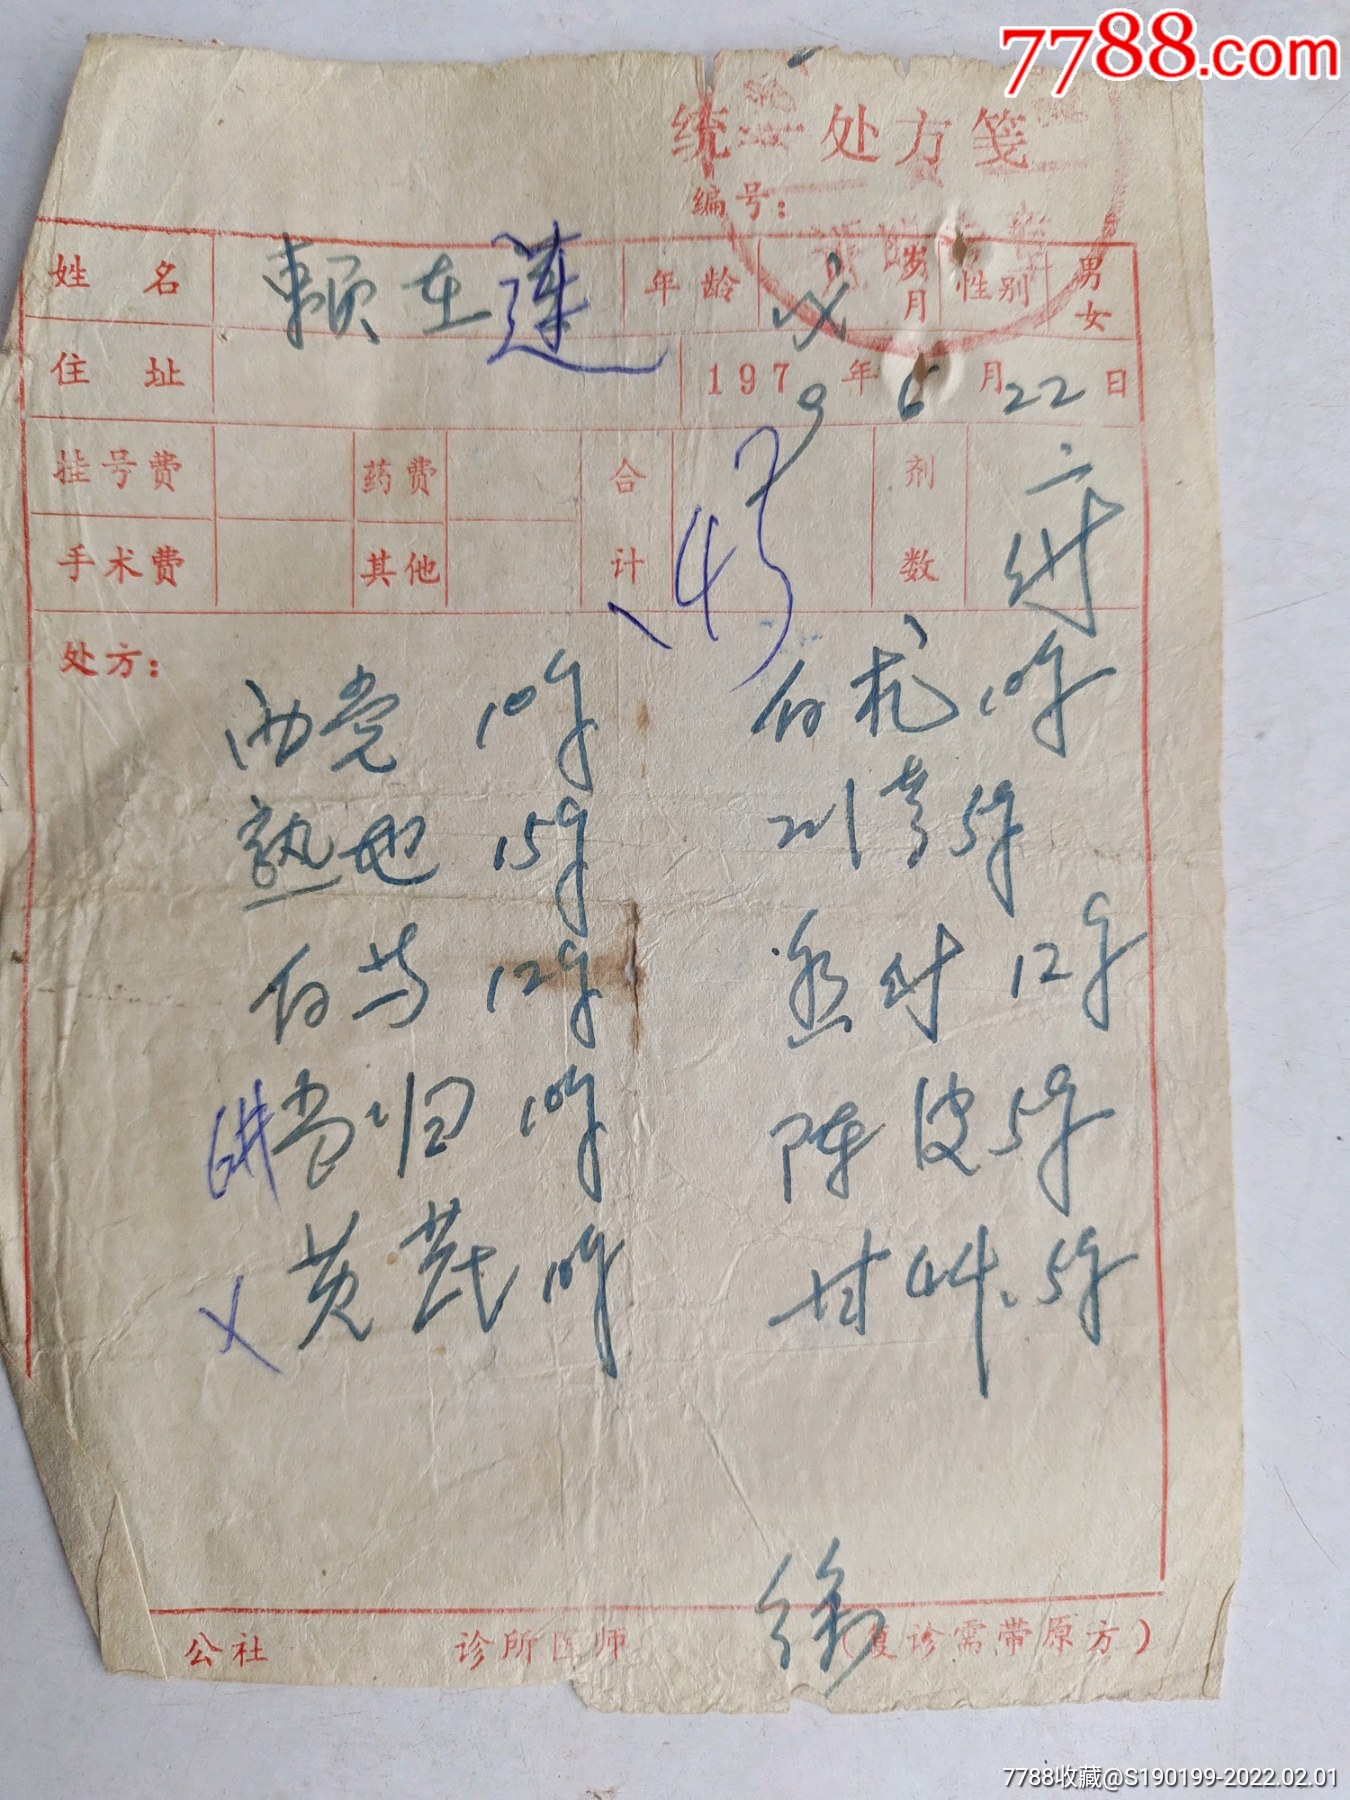 7788.com
统一处方笺
编号：
姓名 赖在莲 年龄 岁月 性别 男女
住址 1979年6月22日
挂号费 药费 合计 剂数
手术费 其他 付
处方：
西党 10g 白术 10g
熟地 15g 川芎 5g
白芍 12g 12g
当归 10g 陈皮 5g
黄芪 10g 甘草 5g
徐
公社 诊所医师 （复诊需带原方）
7788收藏@S190199-2022.02.01